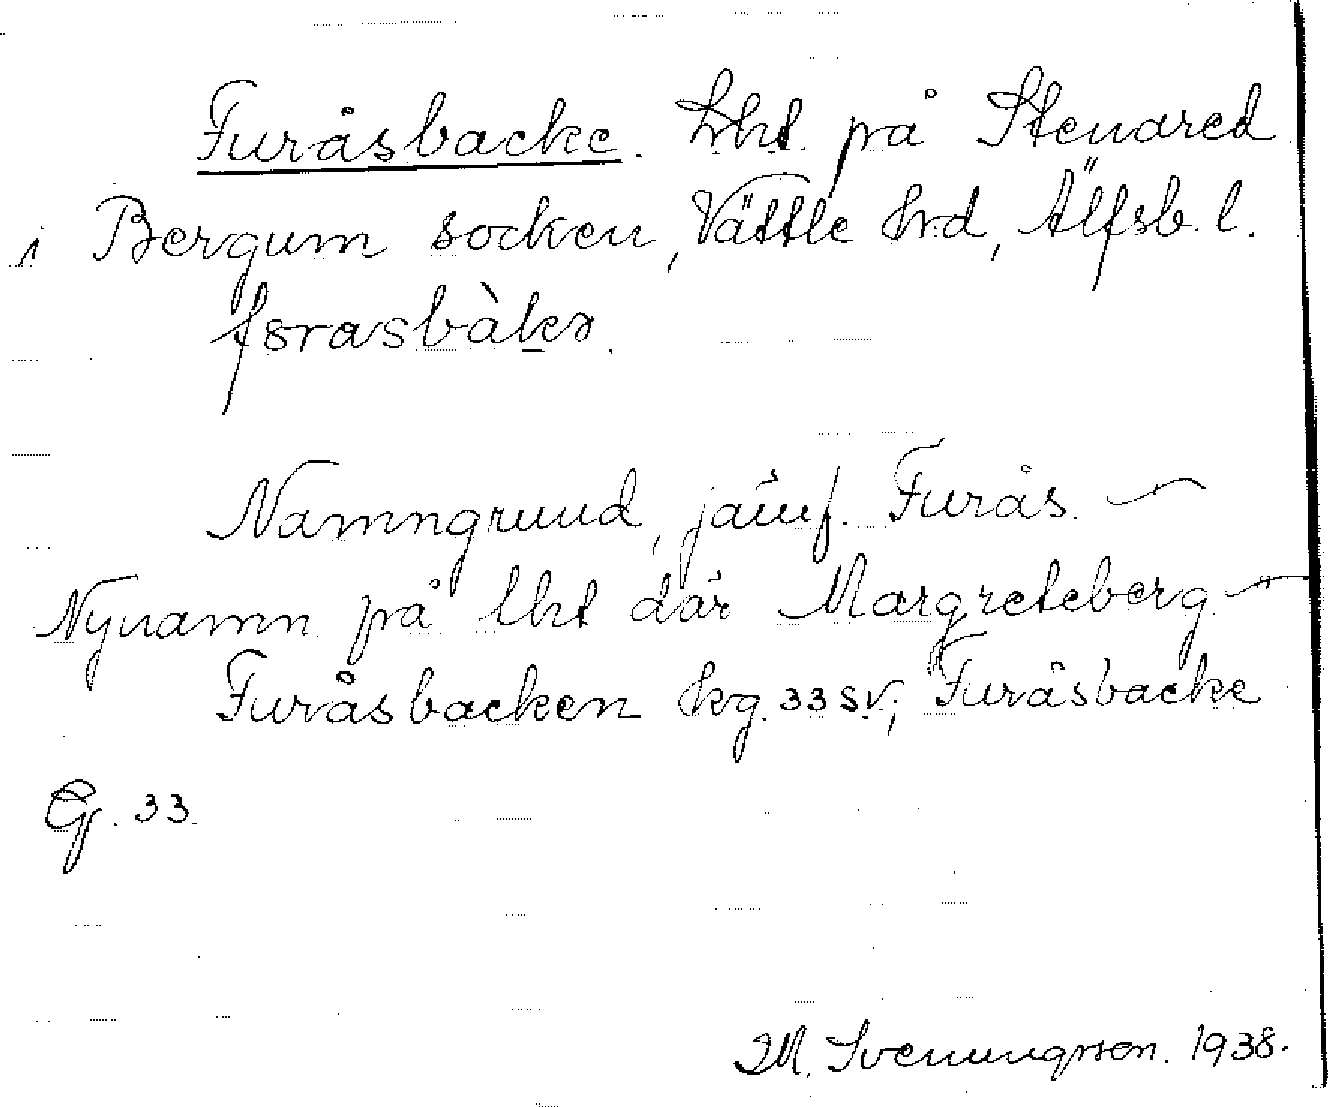 Furåsbacke. Lht på Stenared
i Bergum socken, Vättle hrd, Älfsb. l.
Namngrund, jämf. Furås. —
Nynamn på lht där Margreteberg. —
Furåsbacken kg. 33 SV; Furåsbacke
G. 33.
M. Svenungsson. 1938.